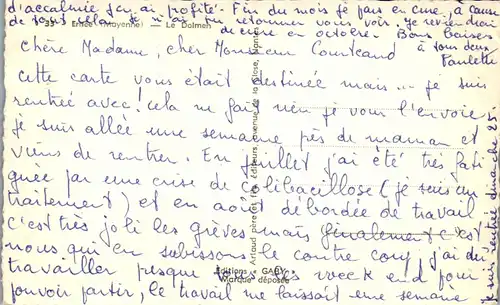 d'accalmie j'en ai profité. Fin du mois je pars en cure, à cause
de tous cela. Je n'ai pu retourner vous voir. Je reviendrai
de cure en octobre. Bons baisers
à tous deux
Paulette
53 - Ernée (Mayenne) - Le Dolmen
Chère Madame, cher Monsieur Courteaud
cette carte vous était destinée mais... je suis
rentrée avec! cela ne fait rien je vous l'envoie
je suis allée une semaine près de maman et
viens de rentrer. En juillet j'ai été très fati
guée par une crise de colibacillose (je suis en
traitement) et en août débordée de travail
c'est très joli les grèves mais finalement c'est
nous qui en subissons le contre coup, j'ai dû
travailler presque tous les week end pour
pouvoir partir, le travail me laissait une semaine
Artaud père et fils, éditeurs, avenue de la Close, Nantes
Éditions GABY
Marque déposée
suis rentrée dimanche 25